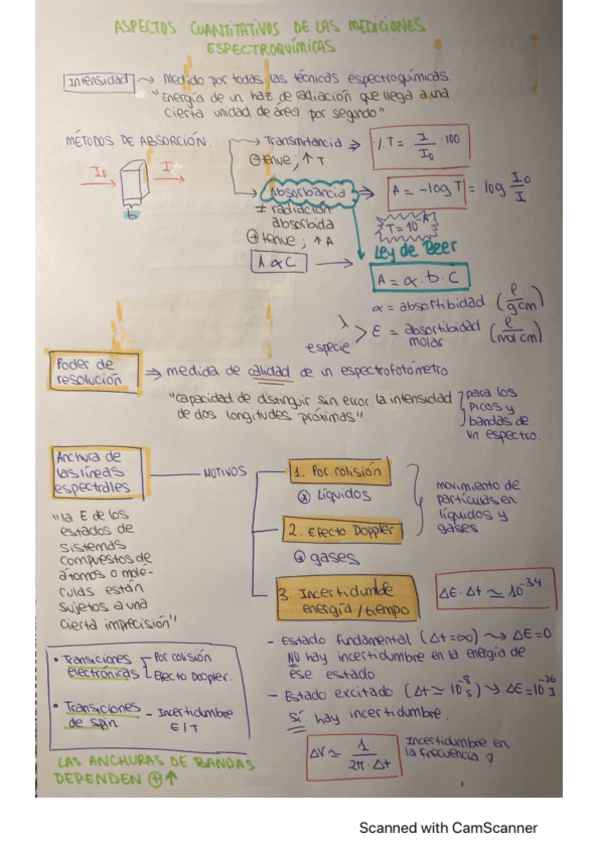 ASPECTOS CUANTITATIVOS DE LAS MEDICIONES
ESPECTROQUÍMICAS
Intensidad → Medido por todas las técnicas espectroquímicas.
"Energía de un haz de radiación que llega a una
cierta unidad de área por segundo"
MÉTODOS DE ABSORCIÓN.
I₀
I
b
→ Transmitancia ⇒ %T = I/I₀ · 100
⊕ tenue; ↑ T
Absorbancia ⇒ A = -log T = log I₀/I
± radiación
absorbida
⊕ tenue; ↑ A
T = 10^-A
Ley de Beer
A α C → A = α · b · C
α = absortibidad (l/g cm)
λ
especie > E = absortibidad molar (l/mol cm)
Poder de
resolución ⇒ medida de calidad de un espectrofotómetro
"capacidad de distinguir sin error la intensidad
de dos longitudes próximas"
para los
picos y
bandas de
un espectro.
Anchura de
las líneas
espectrales — MOTIVOS
"la E de los
estados de
sistemas
compuestos de
átomos o molé-
culas están
sujetos a una
cierta imprecisión"
1. Por colisión
líquidos
2. Efecto Doppler
gases
movimiento de
partículas en
líquidos y
gases
3. Incertidumbre
energía/tiempo
ΔE · Δt ≃ 10^-34
- Estado fundamental (Δt=∞) → ΔE=0
NO hay incertidumbre en la energía de
ese estado
- Estado excitado (Δt ≃ 10^-8 s) → ΔE=10^-26 J
SÍ hay incertidumbre.
Δν ≃ 1/2π·Δt
Incertidumbre en
la frecuencia
• Transiciones
electrónicas
Por colisión
Efecto Doppler.
• Transiciones
de spin - Incertidumbre
E/T
LAS ANCHURAS DE BANDAS
DEPENDEN ⊕↑
Scanned with CamScanner